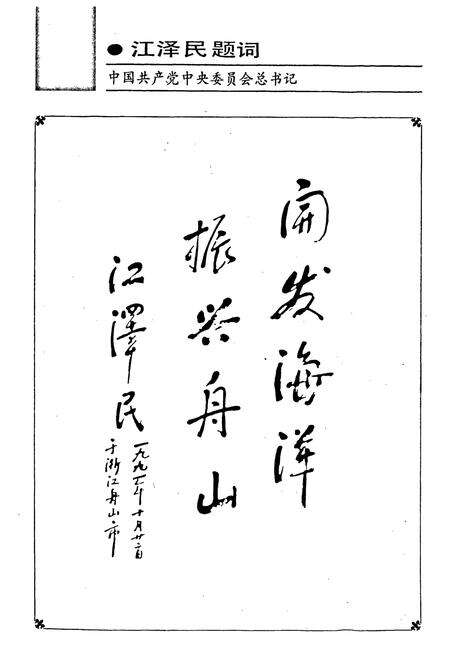 ● 江泽民题词
中国共产党中央委员会总书记
開发海洋
振兴舟山
江澤民
一九九一年十月廿二日
于浙江舟山市